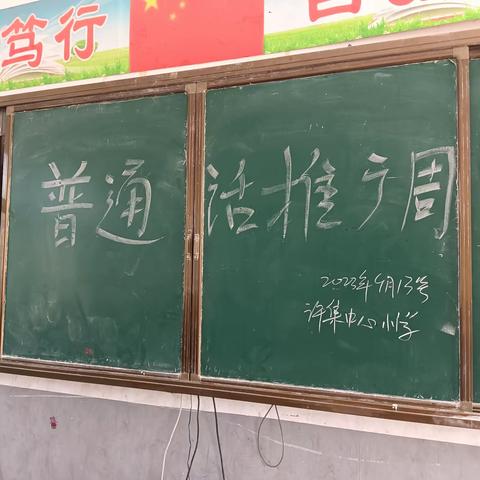 笃行
普通话推广周
2023年9月13号
许集中心小学